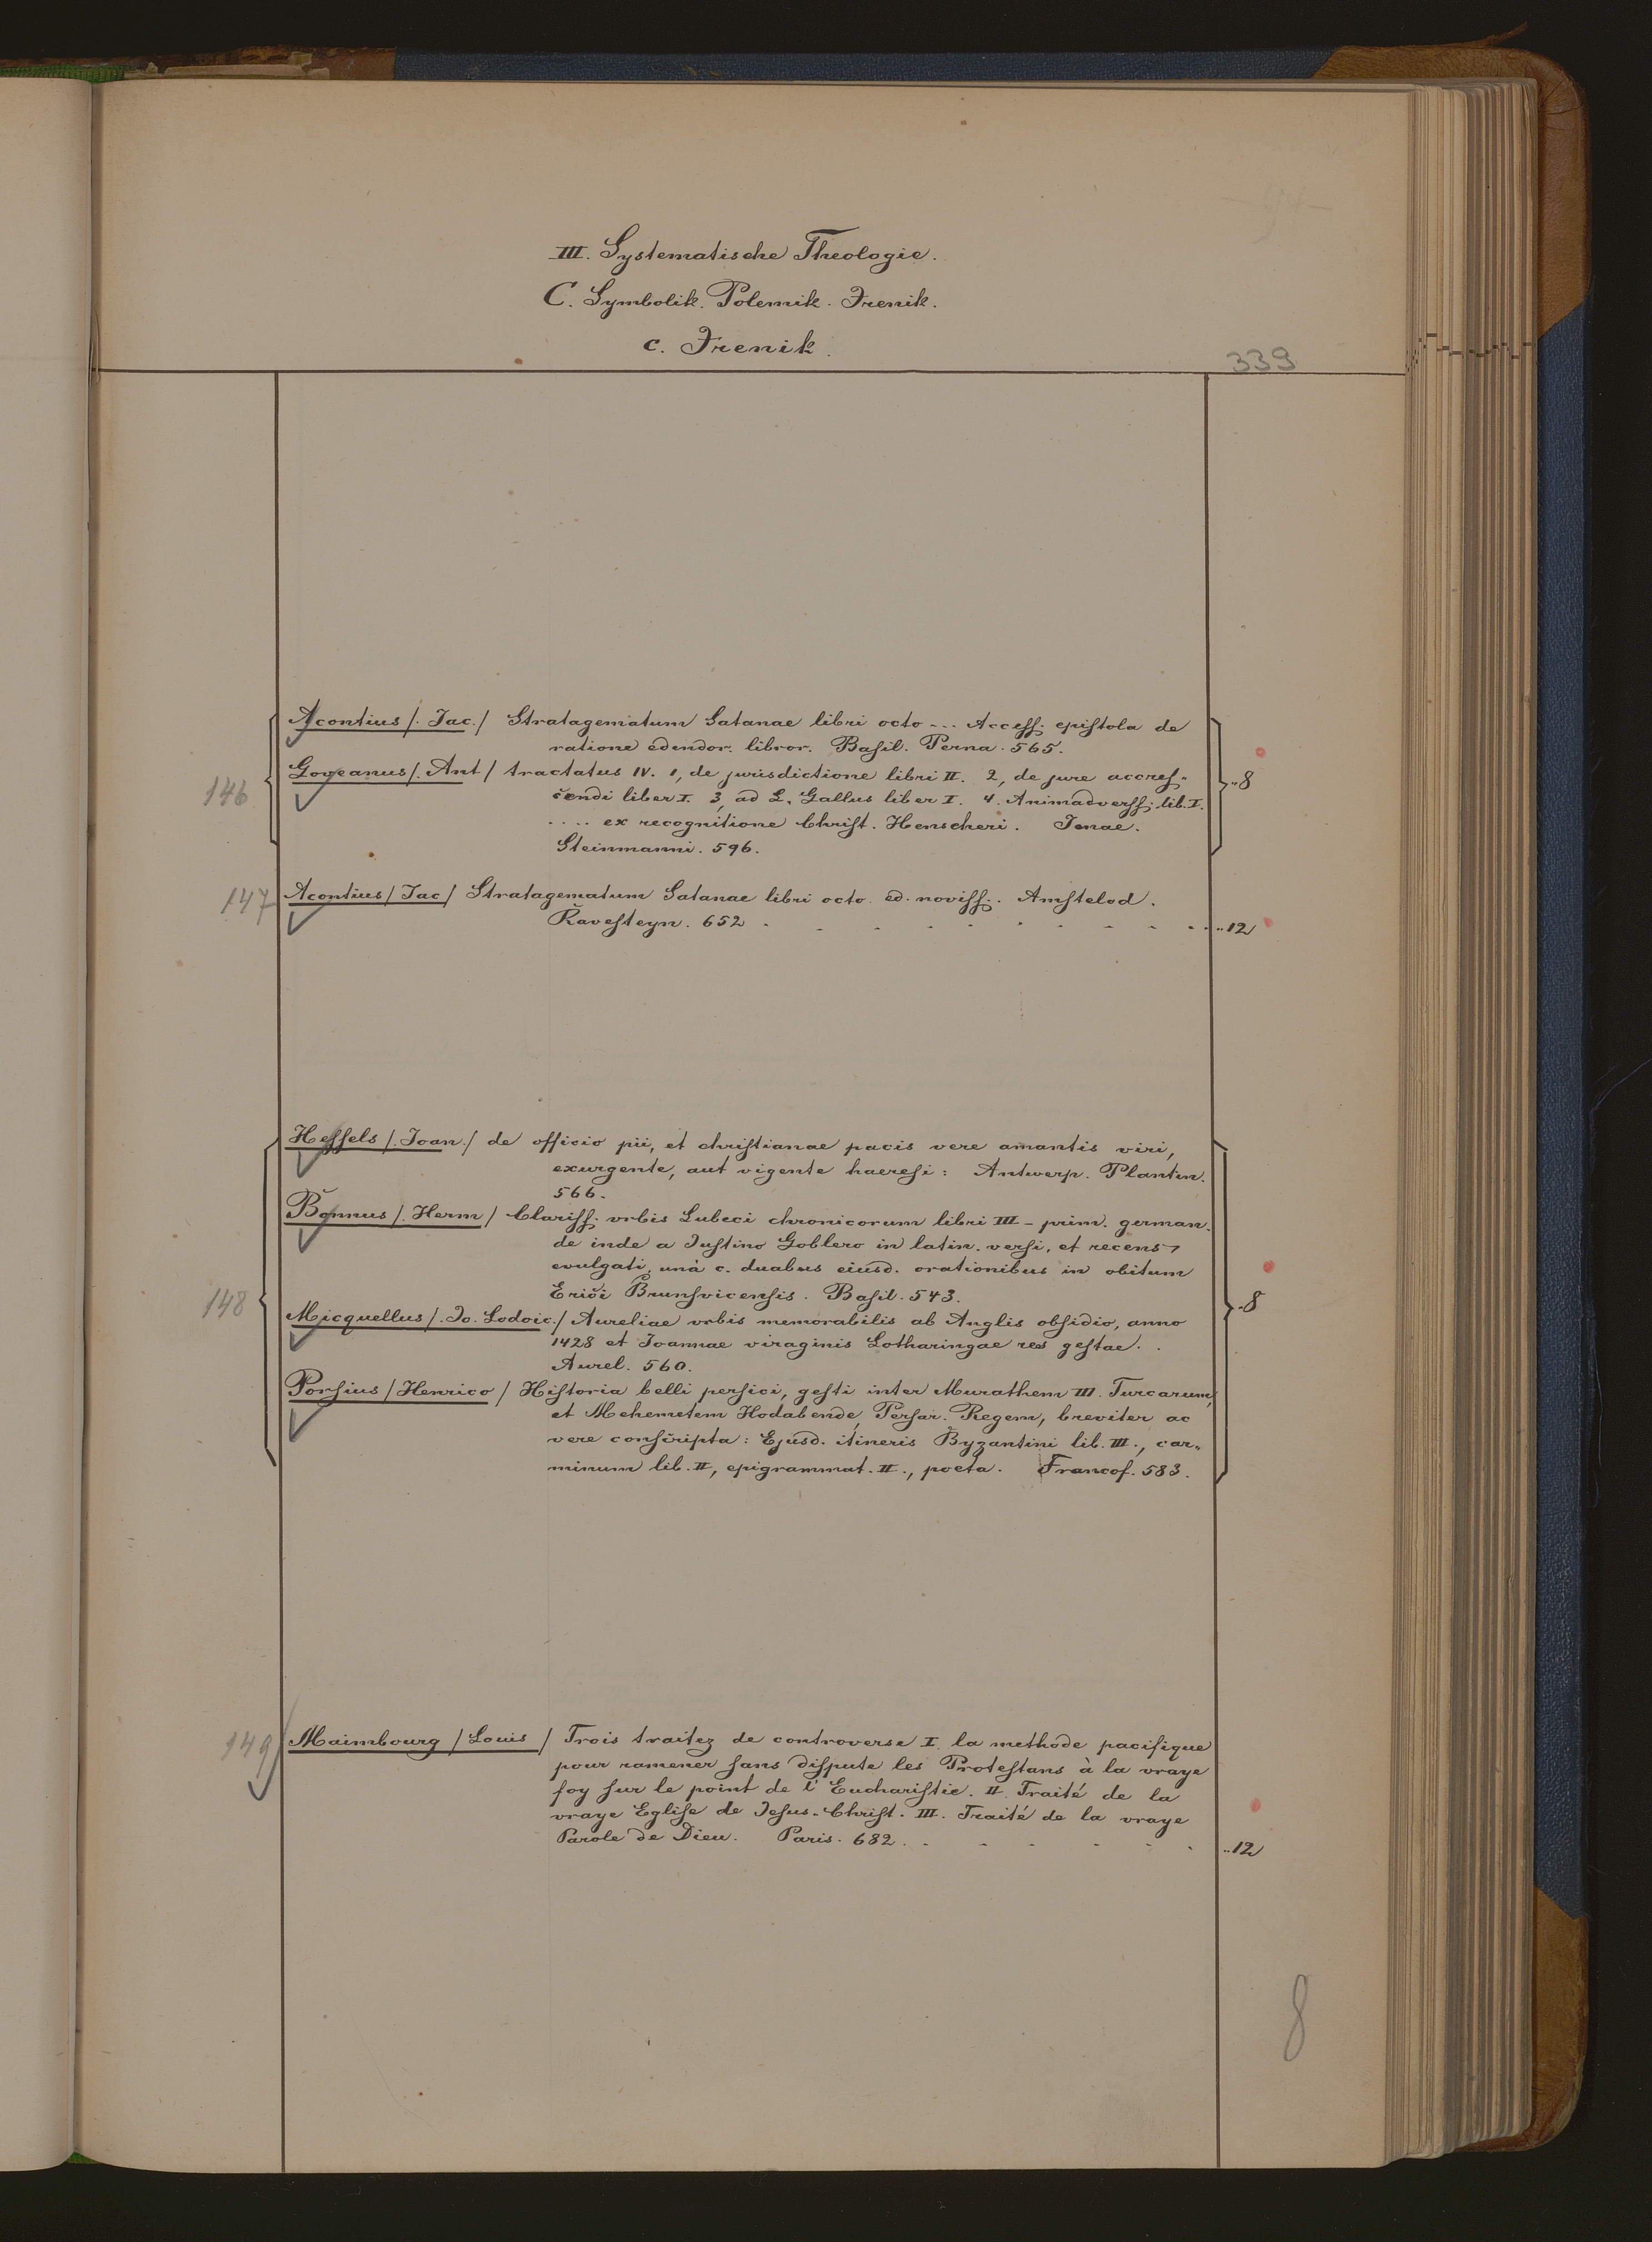 III. Systematische Theologie.
C. Symbolik. Polemik. Irenik.
c. Irenik.
339
Acontius /. Jac./ Stratagematum Satanae libri octo ... Access. epistola de
ratione edendor. libror. Basil. Perna. 565.
146
Goveanus /. Ant / tractatus IV. 1, de jurisdictione libri II. 2, de jure accres-
cendi liber I. 3, ad L. Gallus liber I. 4. Animadverss. lib. I.
.... ex recognitione Christ. Henscheri. Jenae.
Steinmanni. 596.
..8
147 Acontius / Jac / Stratagematum Satanae libri octo. ed. noviss. Amstelod.
Ravesteyn. 652 . . . . . . . . . . ..12
Hessels /. Joan./ de officio pii, et christianae pacis vere amantis viri,
exurgente, aut vigente haeresi: Antwerp. Plantin.
566.
Bonnus /. Herm / Clariss. vrbis Lubeci chronicorum libri III - prim. german.
de inde a Justino Goblero in latin. versi, et recens,
evulgati, unà c. duabus eiusd. orationibus in obitum
Erici Brunsvicensis. Basil. 543.
148
..8
Micquellus /. Jo. Lodoic./ Aureliae vrbis memorabilis ab Anglis obsidio, anno
1428 et Joannae viraginis Lotharingae res gestae.
Aurel. 560.
Porsius / Henrico / Historia belli persici, gesti inter Murathem III. Turcarum,
et Mehemetem Hodabende, Persar. Regem, breviter ac
vere conscripta: Ejusd. itineris Byzantini lib. III., car-
minum lib. II, epigrammat. II., poeta. Francof. 583.
149 Maimbourg / Louis / Trois traitez de controverse I. la methode pacifique
pour ramener sans dispute les Protestans à la vraye
foy sur le point de l'Eucharistie. II. Traité de la
vraye Eglise de Jesus-Christ. III. Traité de la vraye
Parole de Dieu. Paris. 682 . . . . . . ..12
8